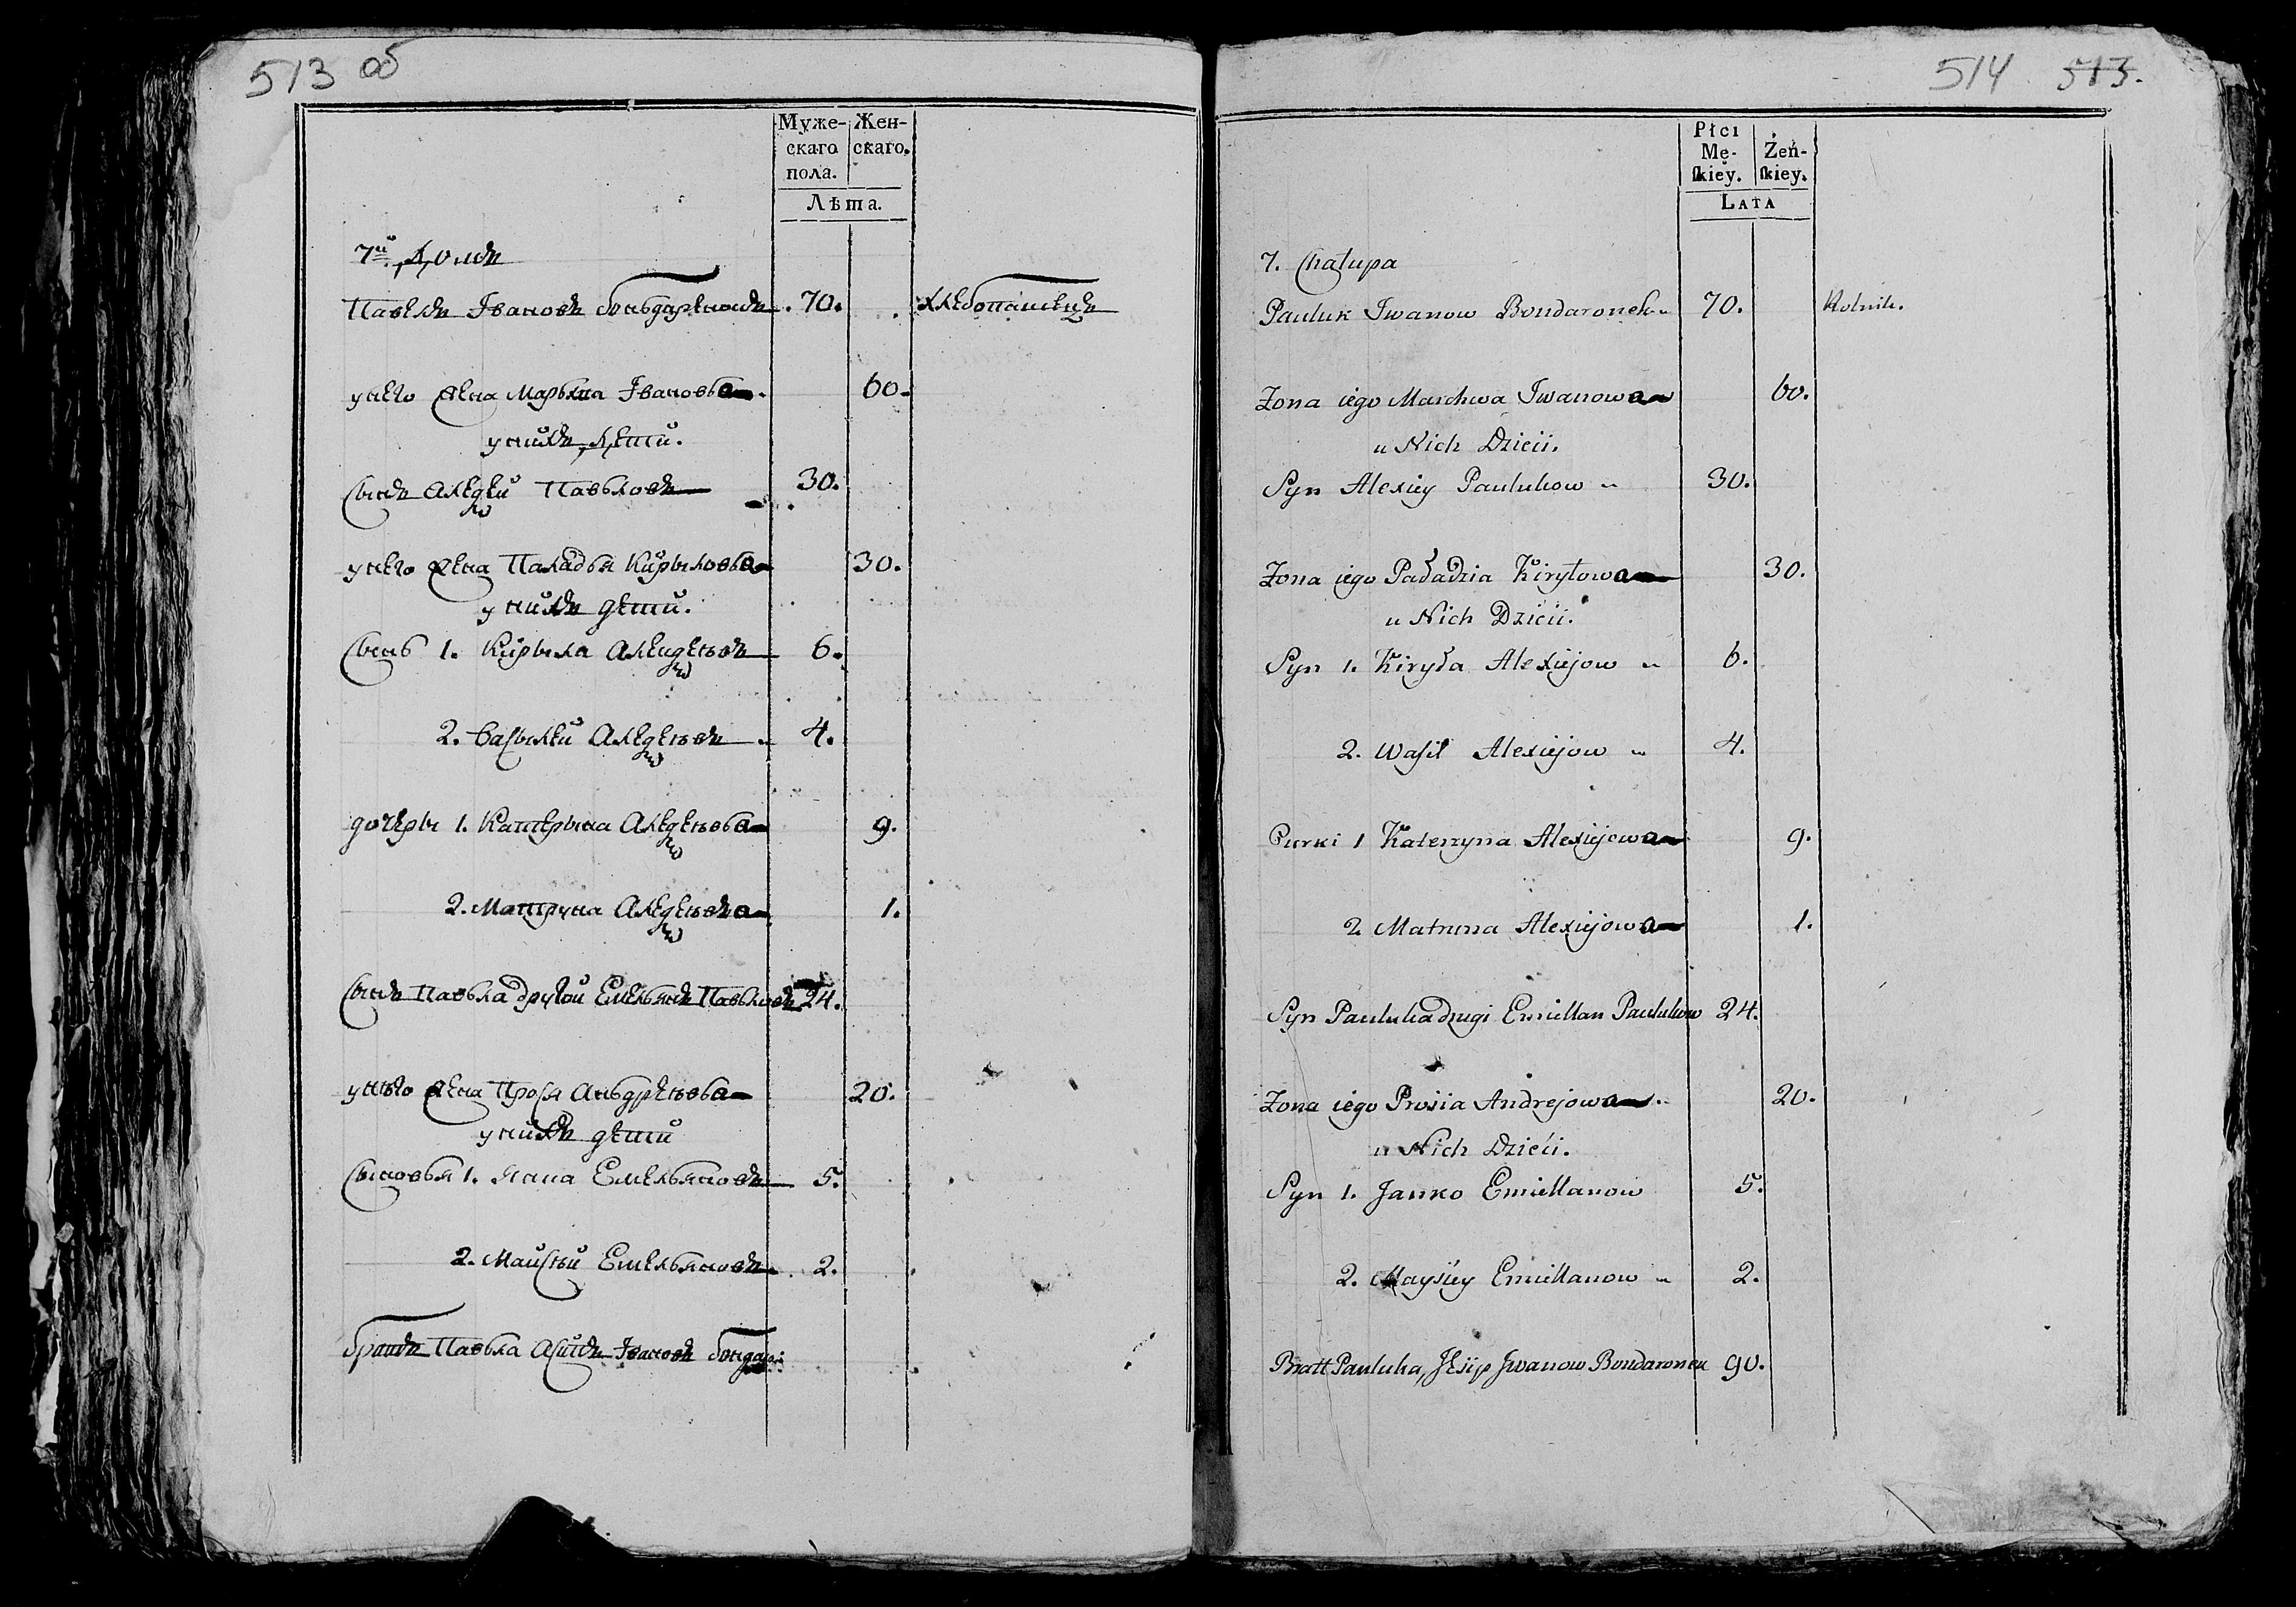 513 об
Муже- Жен-
скаго скаго.
пола.
Лѣта.
7й Домъ
Павелъ Івановъ бонъдаренокъ 70. хлебопашецъ
у него жена Марьхва Івановъва 60.
у нихъ дети.
сынъ Алеѯей Павьловъ 30.
у него жена Паладъя Кирыловъва 30.
у нихъ дети.
сынъ 1. Кирыла Алеѯеевъ 6.
2. Васылей Алеѯеевъ 4.
дочеры 1. Катерына Алеѯеевъва 9.
2. Матруна Алеѯеевъва 1.
сынъ Павьла другой Емельянъ Павьловъ 24.
у него жена Прося Анъдреевъва 20.
у нихъ дети
сыновья 1. Емельяновъ 5.
2. Майсей Емельяновъ 2.
братъ Павьла Асипъ Івановъ бондар:
514 513.
Płci
Mę- Żeń-
ſkiey. ſkiey.
LATA
7. Chałupa
Pauluk Iwanow Bondaronek 70. Rolnik.
Żona iego Marchwa Iwanowa 60.
u Nich Dzieci.
Syn Alexiey Paulukow 30.
Żona iego Paładzia Kiryłowa 30.
u Nich Dzieci.
Syn 1. Kiryła Alexiejow 6.
2. Waſil Alexiejow 4.
Curki 1 Katerzyna Alexiejowa 9.
2 Matruna Alexiejowa 1.
Syn Pauluka drugi Emillan Paulukow 24.
Żona iego Prosia Andrejowa 20.
u Nich Dzieci.
Syn 1. Janko Emillanow 5.
2. Maysiey Emillanow 2.
Bratt Pauluka, Jesip Iwanow Bondaronek 90.